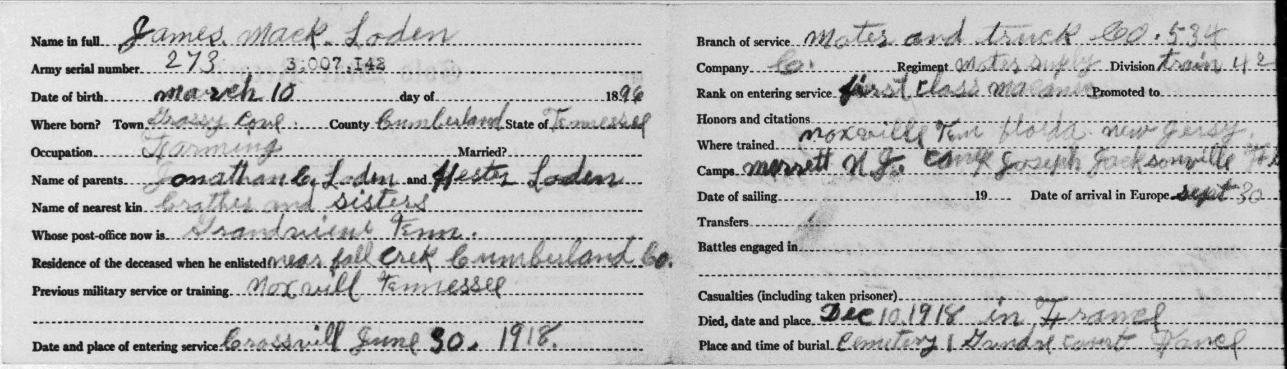 Name in full James Mack Loden
Army serial number 273 3,007,142
Date of birth march 10 day of 1896
Where born? Town Grassy Cove County Cumberland State of Tennessee
Occupation Farming Married?
Name of parents Jonathan C. Loden and Hester Loden
Name of nearest kin Brother and sisters
Whose post-office now is Grandview Tenn.
Residence of the deceased when he enlisted near fall Crek Cumberland Co.
Previous military service or training Noxvill Tennessee
Date and place of entering service Crossvill June 30. 1918.
Branch of service Moter and truck Co. 534
Company C. Regiment Moter suply Division train 42
Rank on entering service first class Promoted to
Honors and citations
Where trained Noxville Ten floida. new Jersy.
Camps merrett N J. camp Joseph Jacksonville
Date of sailing 19 Date of arrival in Europe sept 30
Transfers
Battles engaged in
Casualties (including taken prisoner)
Died, date and place Dec 10, 1918 in France
Place and time of burial Cemetery 1